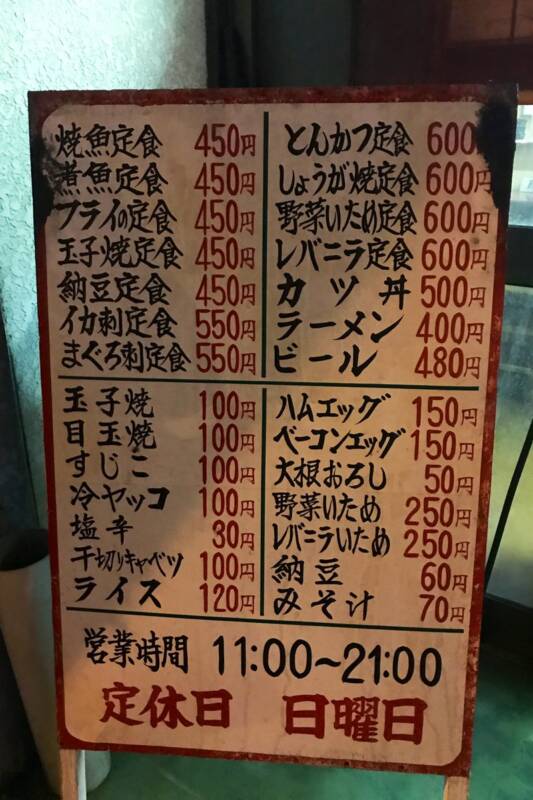 焼魚定食 450円
煮魚定食 450円
フライの定食 450円
玉子焼定食 450円
納豆定食 450円
イカ刺定食 550円
まぐろ刺定食 550円
とんかつ定食 600
しょうが焼定食 600円
野菜いため定食 600円
レバニラ定食 600円
カツ丼 500円
ラーメン 400円
ビール 480円
玉子焼 100円
目玉焼 100円
すじこ 100円
冷ヤッコ 100円
塩辛 30円
千切りキャベツ 100円
ライス 120円
ハムエッグ 150円
ベーコンエッグ 150円
大根おろし 50円
野菜いため 250円
レバニラいため 250円
納豆 60円
みそ汁 70円
営業時間 11:00~21:00
定休日 日曜日